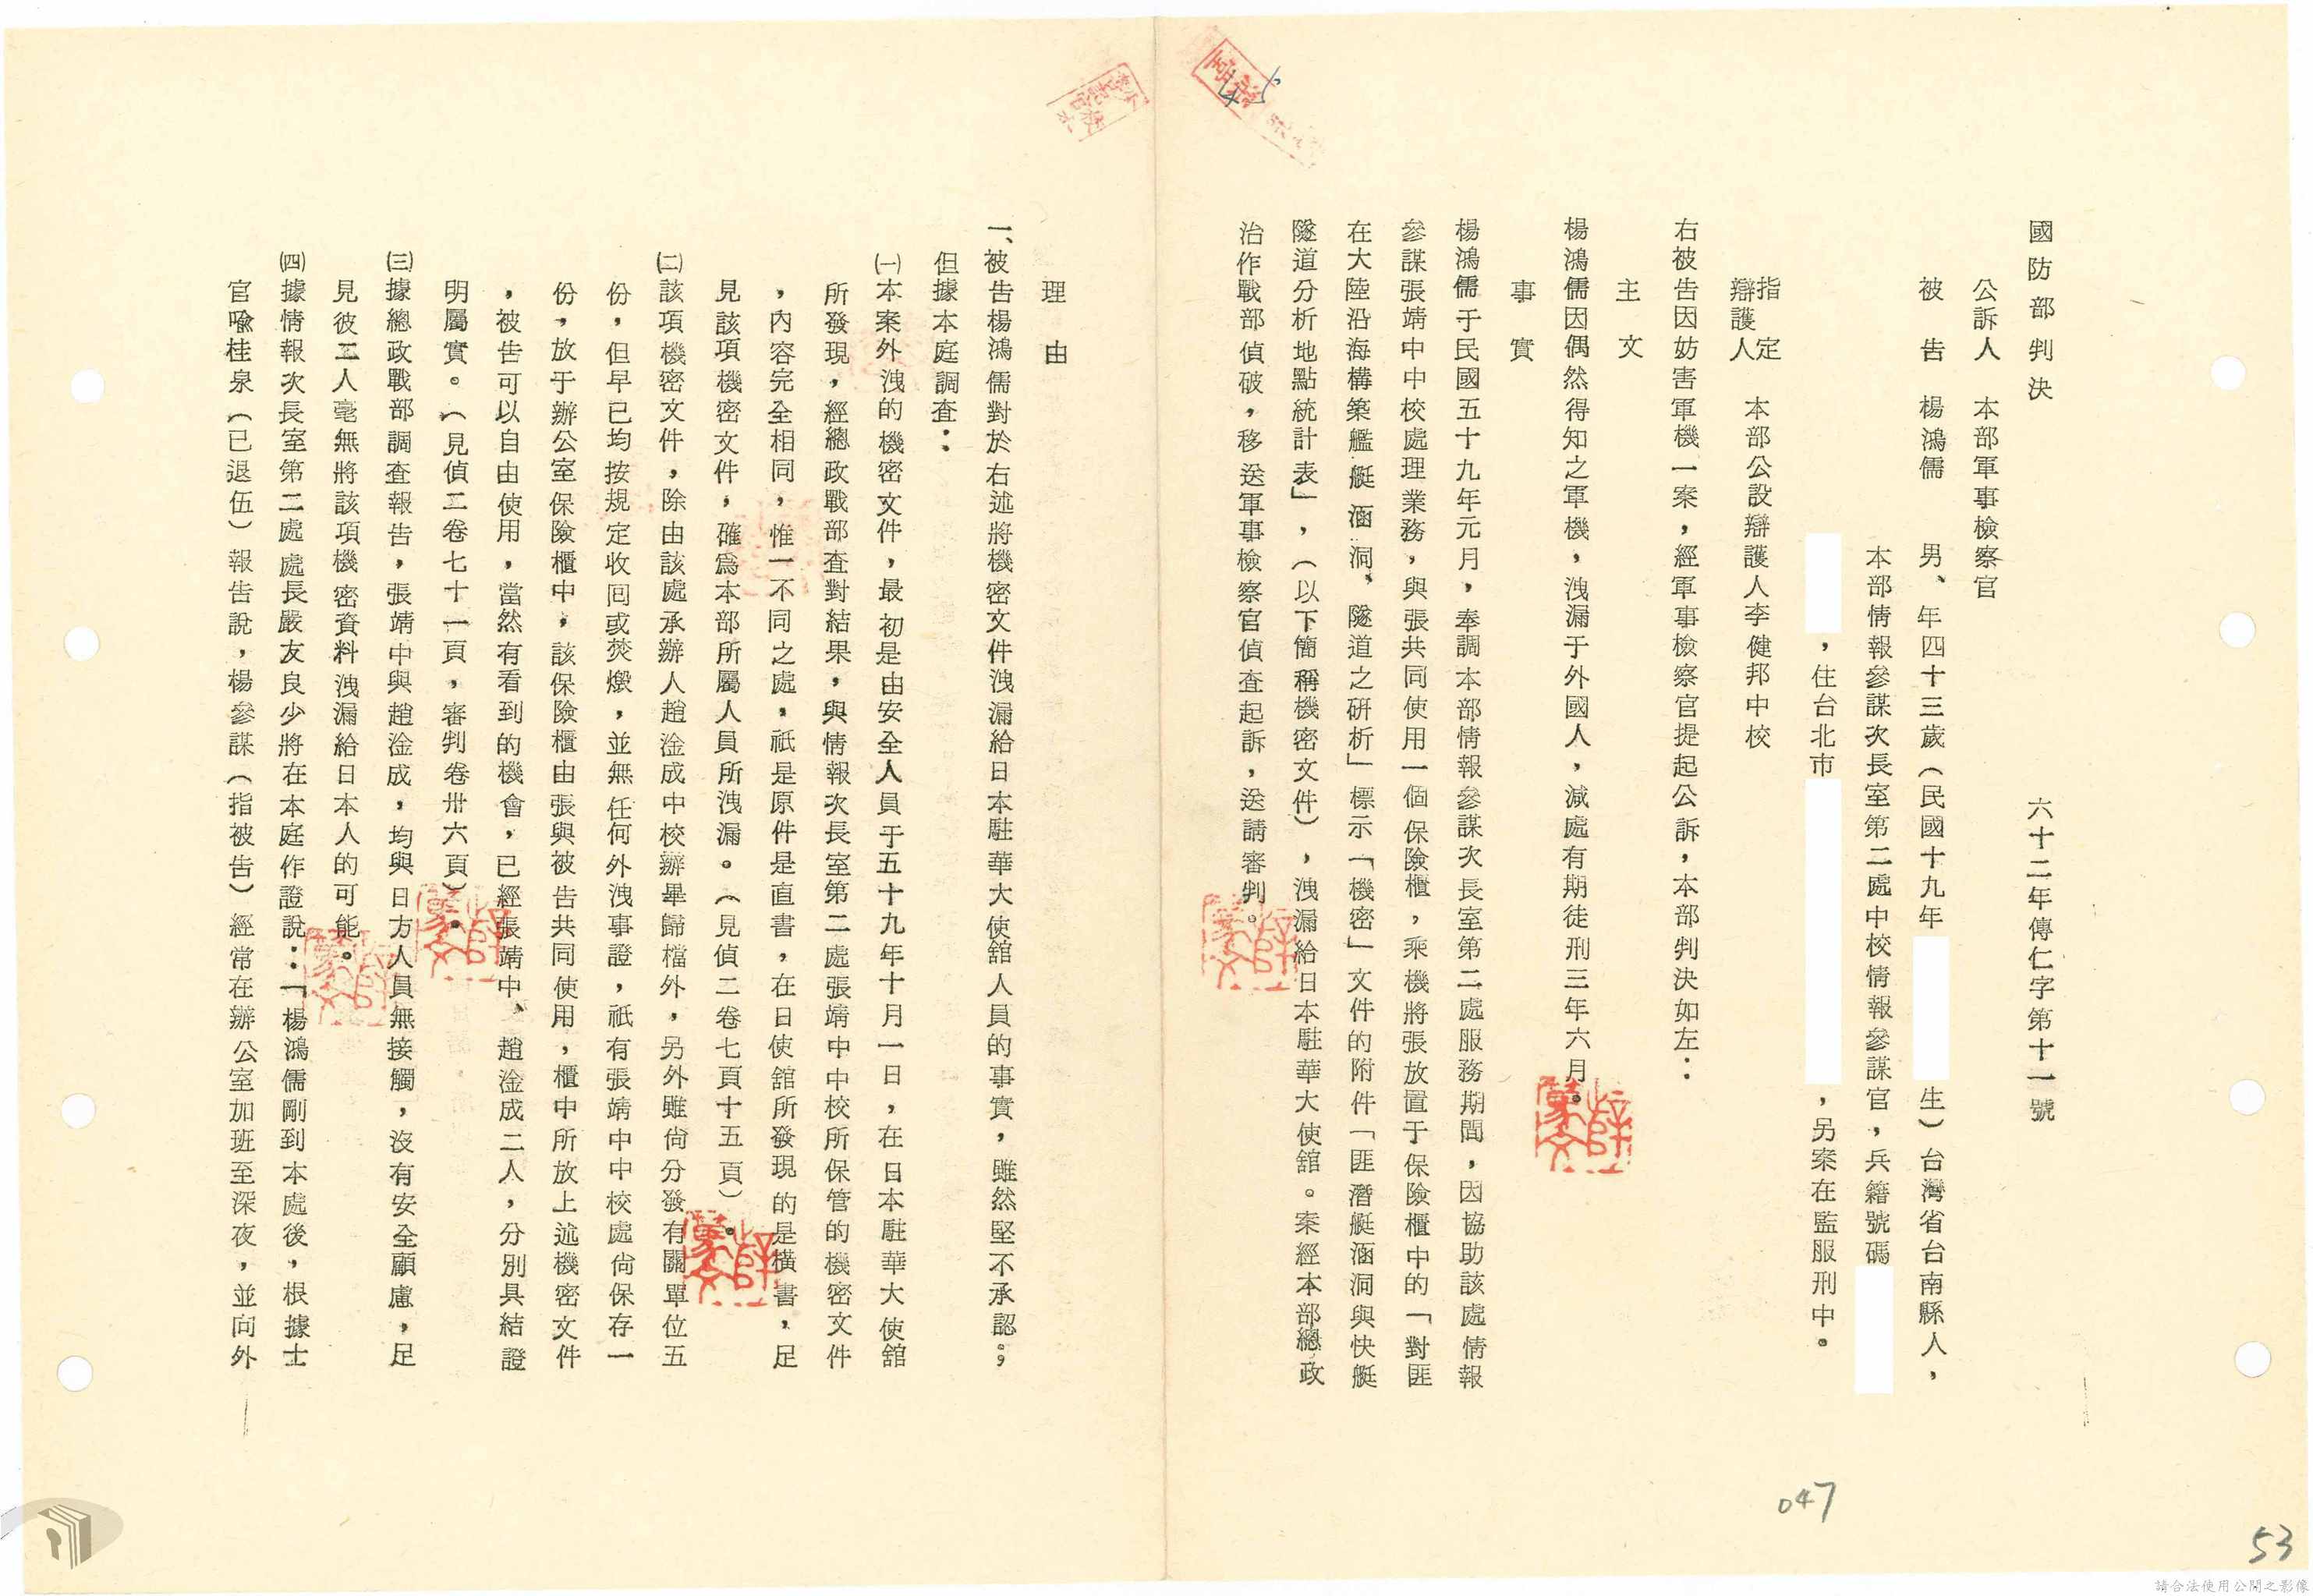 國防部判決
六十二年傳仁字第十一號
公訴人 本部軍事檢察官
被告 楊鴻儒 男、年四十三歲（民國十九年 生）台灣省台南縣人，
本部情報參謀次長室第二處中校情報參謀官，兵籍號碼
，住台北市 ，另案在監服刑中。
指定辯護人 本部公設辯護人李健邦中校
右被告因妨害軍機一案，經軍事檢察官提起公訴，本部判決如左：
主文
楊鴻儒因偶然得知之軍機，洩漏于外國人，減處有期徒刑三年六月。
事實
楊鴻儒于民國五十九年元月，奉調本部情報參謀次長室第二處服務期間，因協助該處情報
參謀張靖中中校處理業務，與張共同使用一個保險櫃，乘機將張放置于保險櫃中的「對匪
在大陸沿海構築艦艇涵洞、隧道之研析」標示「機密」文件的附件「匪潛艇涵洞與快艇
隧道分析地點統計表」，（以下簡稱機密文件），洩漏給日本駐華大使館。案經本部總政
治作戰部偵破，移送軍事檢察官偵查起訴，送請審判。
理由
一、被告楊鴻儒對於右述將機密文件洩漏給日本駐華大使舘人員的事實，雖然堅不承認；
但據本庭調查：
㈠本案外洩的機密文件，最初是由安全人員于五十九年十月一日，在日本駐華大使舘
所發現，經總政戰部查對結果，與情報次長室第二處張靖中中校所保管的機密文件
，內容完全相同，惟一不同之處，祇是原件是直書，在日使舘所發現的是橫書，足
見該項機密文件，確爲本部所屬人員所洩漏。（見偵二卷七頁十五頁）。
㈡該項機密文件，除由該處承辦人趙淦成中校辦畢歸檔外，另外雖尙分發有關單位五
份，但早已均按規定收回或焚燬，並無任何外洩事證，祇有張靖中中校處尙保存一
份，放于辦公室保險櫃中，該保險櫃由張與被告共同使用，櫃中所放上述機密文件
，被告可以自由使用，當然有看到的機會，已經張靖中、趙淦成二人，分別具結證
明屬實。（見偵二卷七十一頁，審判卷卅六頁）。
㈢據總政戰部調查報告，張靖中與趙淦成，均與日方人員無接觸，沒有安全顧慮，足
見彼二人毫無將該項機密資料洩漏給日本人的可能。
㈣據情報次長室第二處處長嚴友良少將在本庭作證說：「楊鴻儒剛到本處後，根據士
官喩桂泉（已退伍）報告說，楊參謀（指被告）經常在辦公室加班至深夜，並向外
047
53
請合法使用公開之影像